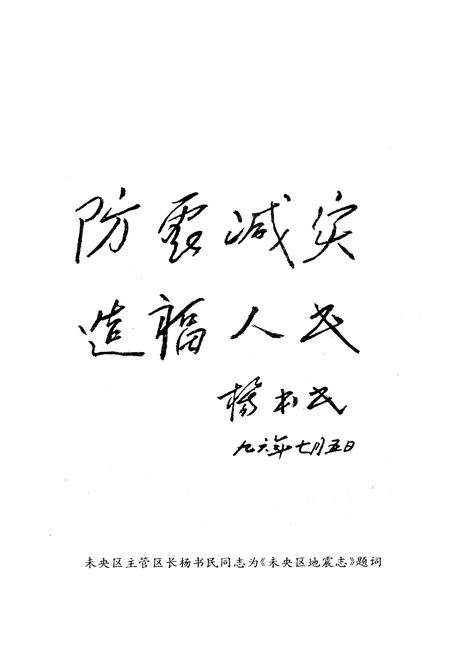 防震减灾
造福人民
杨书民
九六年七月五日
未央区主管区长杨书民同志为《未央区地震志》题词